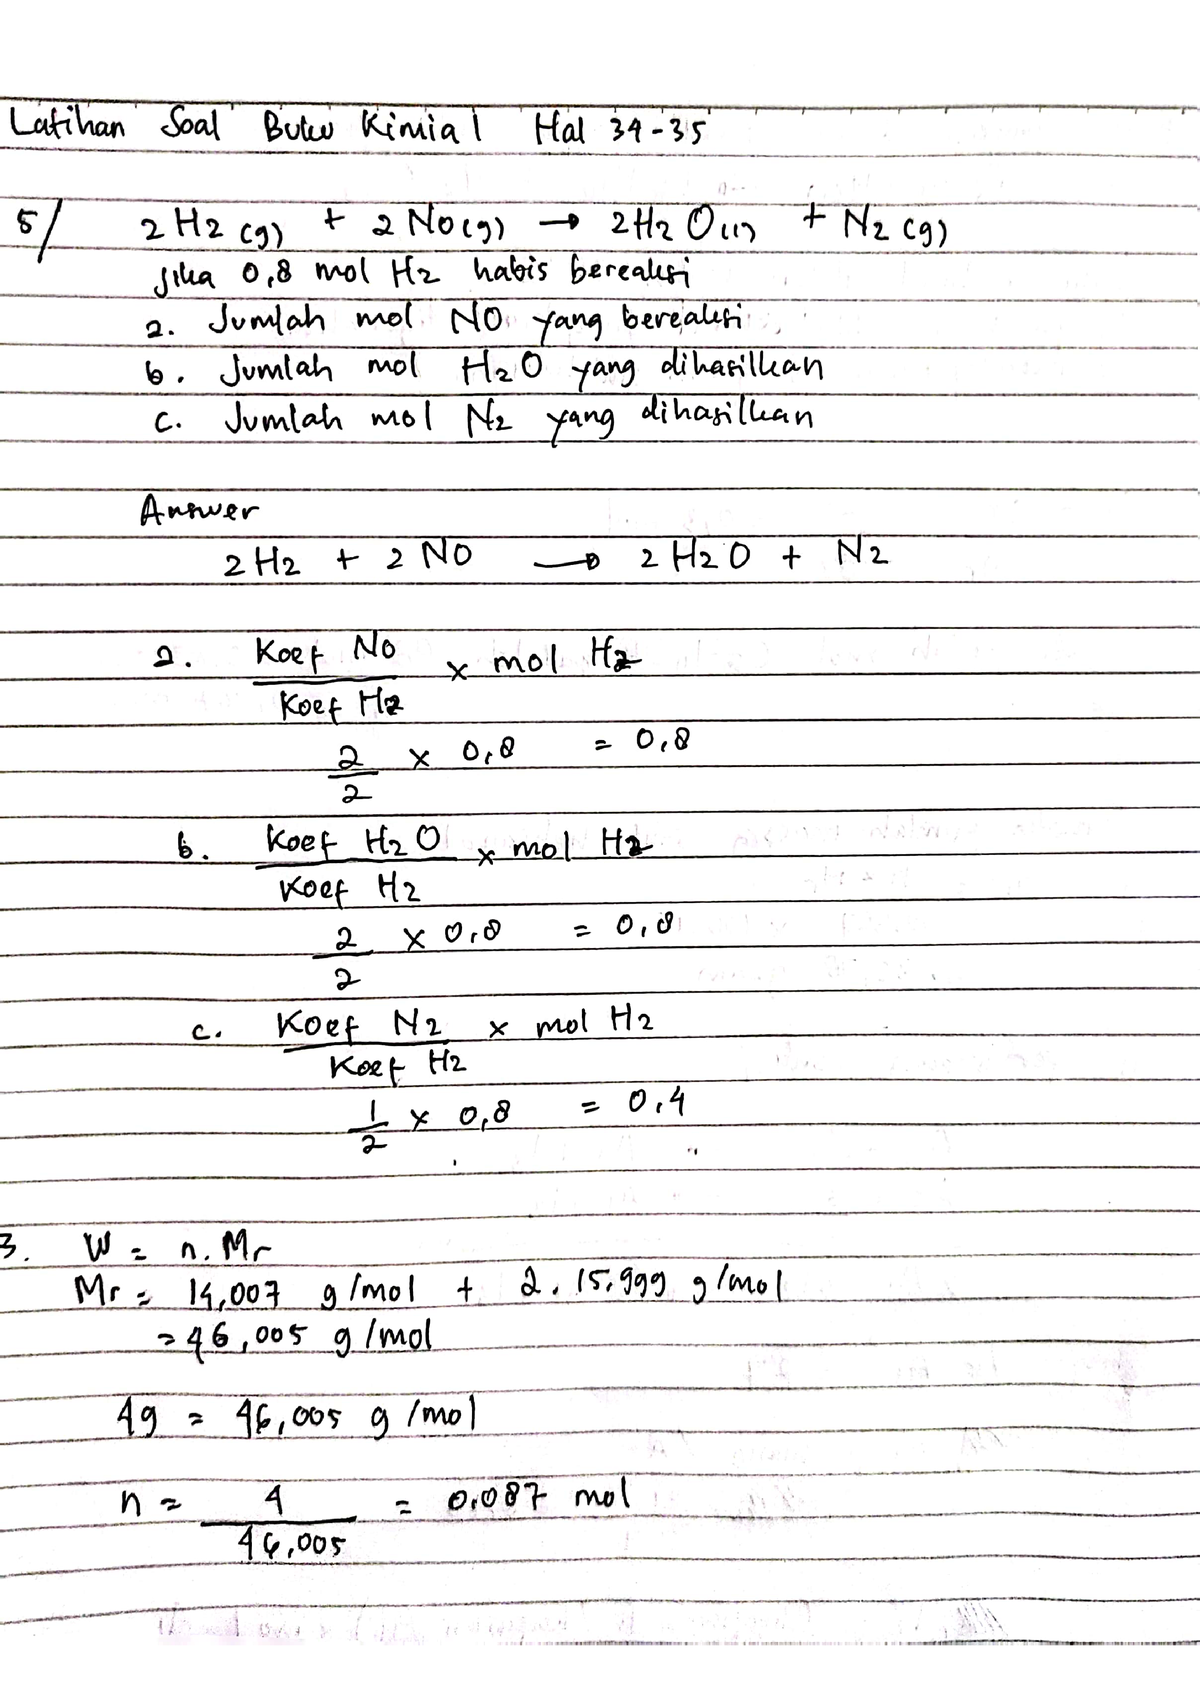 Latihan Soal Buku Kimia 1 Hal 34-35
5/ 2 H2 (g) + 2 NO(g) → 2H2O(l) + N2 (g)
Jika 0,8 mol H2 habis bereaksi
a. Jumlah mol NO yang bereaksi
b. Jumlah mol H2O yang dihasilkan
c. Jumlah mol N2 yang dihasilkan
Answer
2 H2 + 2 NO → 2 H2O + N2
a. Koef NO x mol H2
Koef H2
2 x 0,8 = 0,8
2
b. Koef H2O x mol H2
Koef H2
2 x 0,8 = 0,8
2
c. Koef N2 x mol H2
Koef H2
1 x 0,8 = 0,4
2
3. W = n. Mr
Mr = 14,007 g/mol + 2. 15,999 g/mol
= 46,005 g/mol
4g = 46,005 g/mol
n = 4 = 0,087 mol
46,005